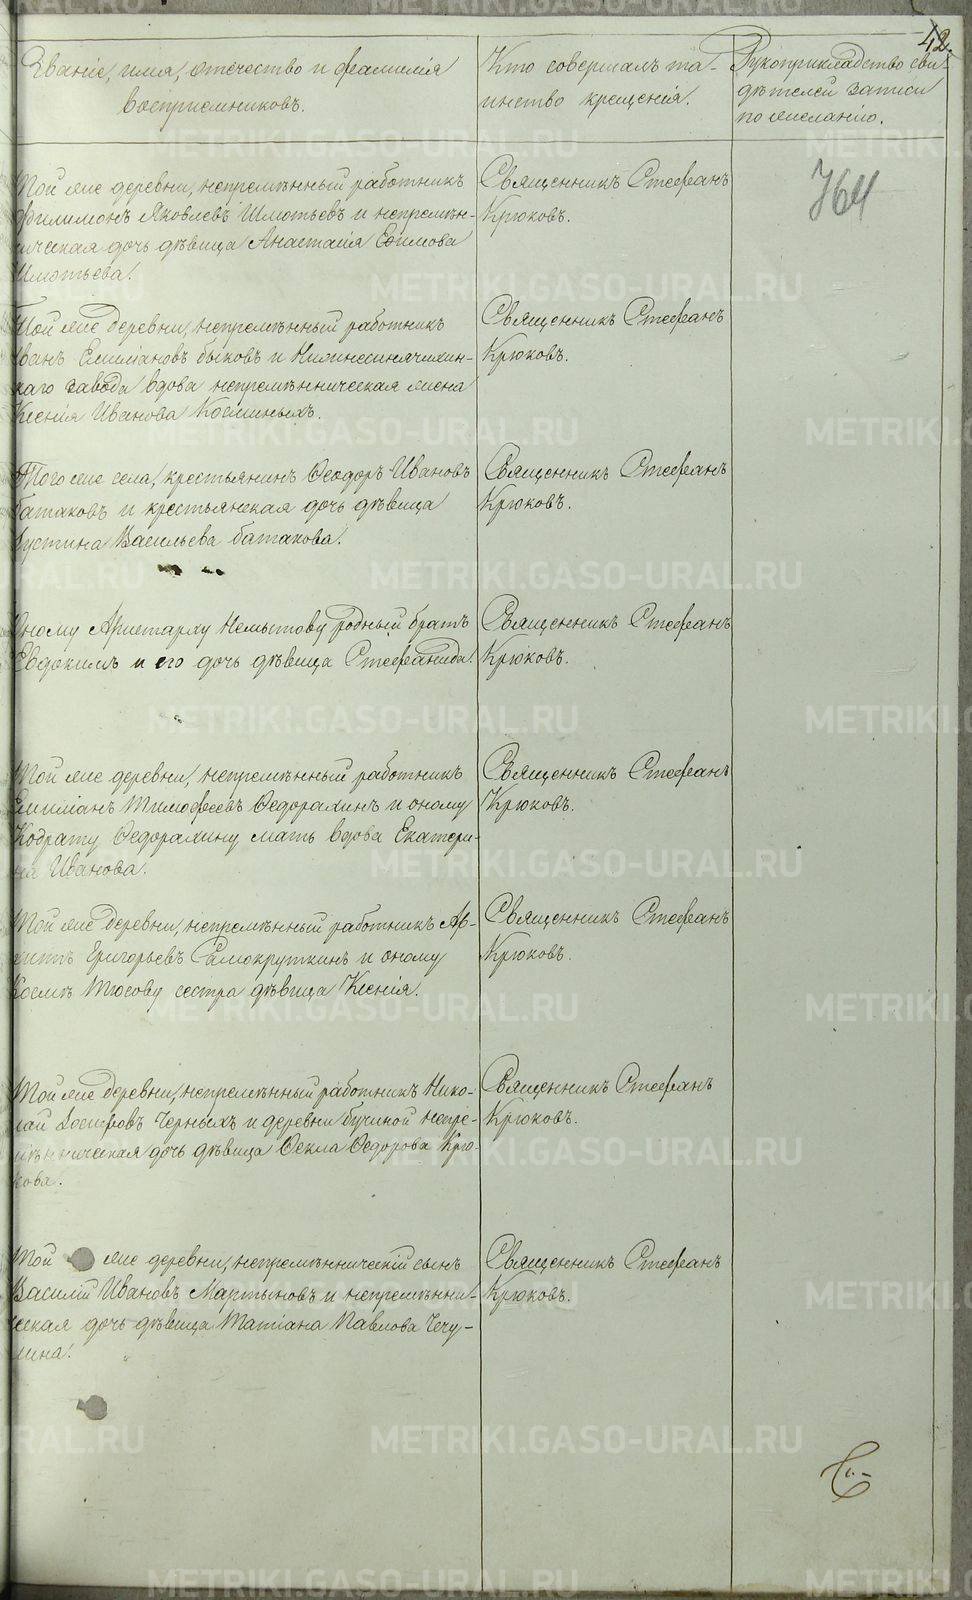 42.
Званіе, имя, отчество и фамилія
воспріемниковъ.
Кто совершалъ та-
инство крещенія.
Рукоприкладство сви-
дѣтелей записи
по желанію.
764
Той же деревни, непремѣнный работникъ
Филимонъ Яковлевъ Шмотьевъ и непремѣн-
ическая дочь дѣвица Анастасія Ефимова
Шмотьева.
Священникъ Стефанъ
Крюковъ.
Той же деревни, непремѣнный работникъ
Иванъ Емиліановъ Быковъ и Нижнесинячихин-
скаго завода вдова непремѣнническая жена
Ксенія Иванова Космыныхъ.
Священникъ Стефанъ
Крюковъ.
Того же села, крестьянинъ Ѳеодоръ Ивановъ
Батаковъ и крестьянская дочь дѣвица
Іустина Васильева Батакова.
Священникъ Стефанъ
Крюковъ.
Оному Аристарху Немытову родный братъ
Евдокимъ и его дочь дѣвица Стефанида.
Священникъ Стефанъ
Крюковъ.
Той же деревни, непремѣнный работникъ
Емиліанъ Тимофеевъ Ѳедорахинъ и оному
Кодрату Ѳедорахину мать вдова Екатери-
на Иванова.
Священникъ Стефанъ
Крюковъ.
Той же деревни, непремѣнный работникъ Ар-
хиппъ Григорьевъ Самокруткинъ и оному
Космѣ Тюсову сестра дѣвица Ксенія.
Священникъ Стефанъ
Крюковъ.
Той же деревни, непремѣнный работникъ Нико-
лай Іосифовъ Черныхъ и деревни Бучиной непре-
мѣнническая дочь дѣвица Ѳекла Ѳедорова Крю-
кова.
Священникъ Стефанъ
Крюковъ.
Той же деревни, непремѣнническій сынъ
Василій Ивановъ Мартыновъ и непремѣнни-
ческая дочь дѣвица Татіана Павлова Чечу-
лина.
Священникъ Стефанъ
Крюковъ.
METRIKI.GASO-URAL.RU